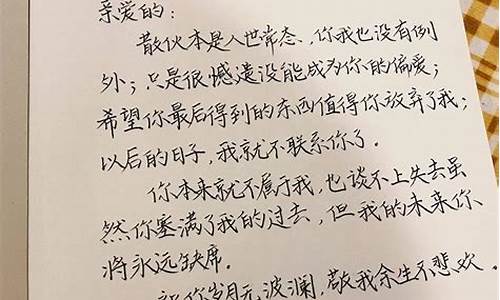 亲爱的:
散伙本是人世常态、你我也没有例
外;只是很憾遗没能成为你的偏爱;
希望你最后得到的东西值得你放弃了我;
以后的日子,我就不联系你了.
你本来就不属于我,也谈不上失去虽
然你塞满了我的过去,但我的未来你
将永远缺席.
祝你岁月无波澜,敬我余生不悲欢.